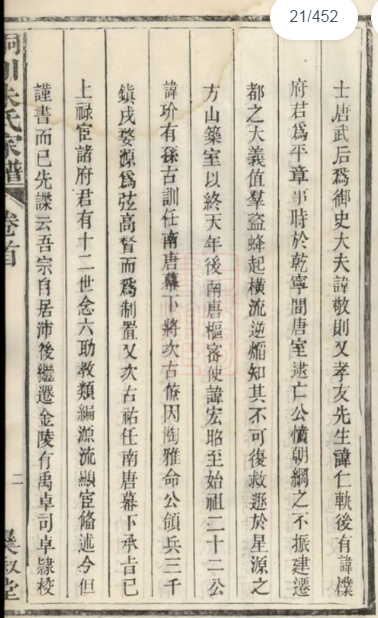 21/452
士唐武后爲御史大夫諱敬則又孝友先生諱仁軌後有諱樸
府君爲平章事時於乾寧間唐室逮亡公憤朝綱之不振建遷
都之大義值羣盜蜂起橫流逆焰知其不可復救遯於星源之
方山築室以終天年後南唐樞密使諱宏昭至始祖二十二公
諱玠有孫古訓任南唐幕下將次古僚因陶雅命公領兵三千
鎮戍婺源爲弦高督而爲制置又次古祐任南唐幕下承旨已
上祿宦諸府君有十二世念六助教類編源流顯宦條述今但
謹書而已先譜云吾宗自居沛後繼遷金陵有禹卓司卓隸校
朱氏宗譜
卷首
二
叙堂